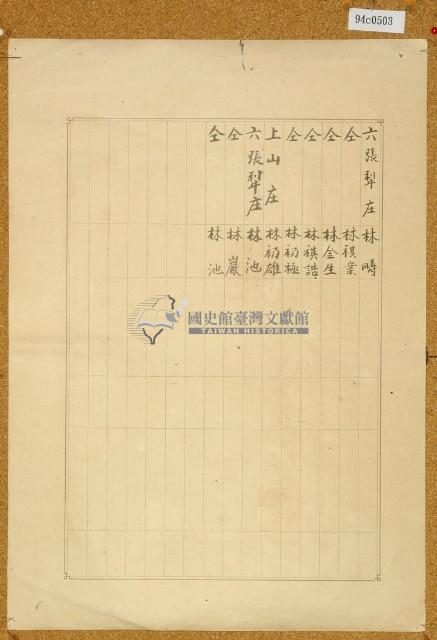 94c0503
六張犁庄 林時
仝 林祺業
仝 林金生
仝 林祺誥
仝 林初極
上山庄 林初雄
六張犁庄 林池
仝 林巖
仝 林池
國史館臺灣文獻館
TAIWAN HISTORICA